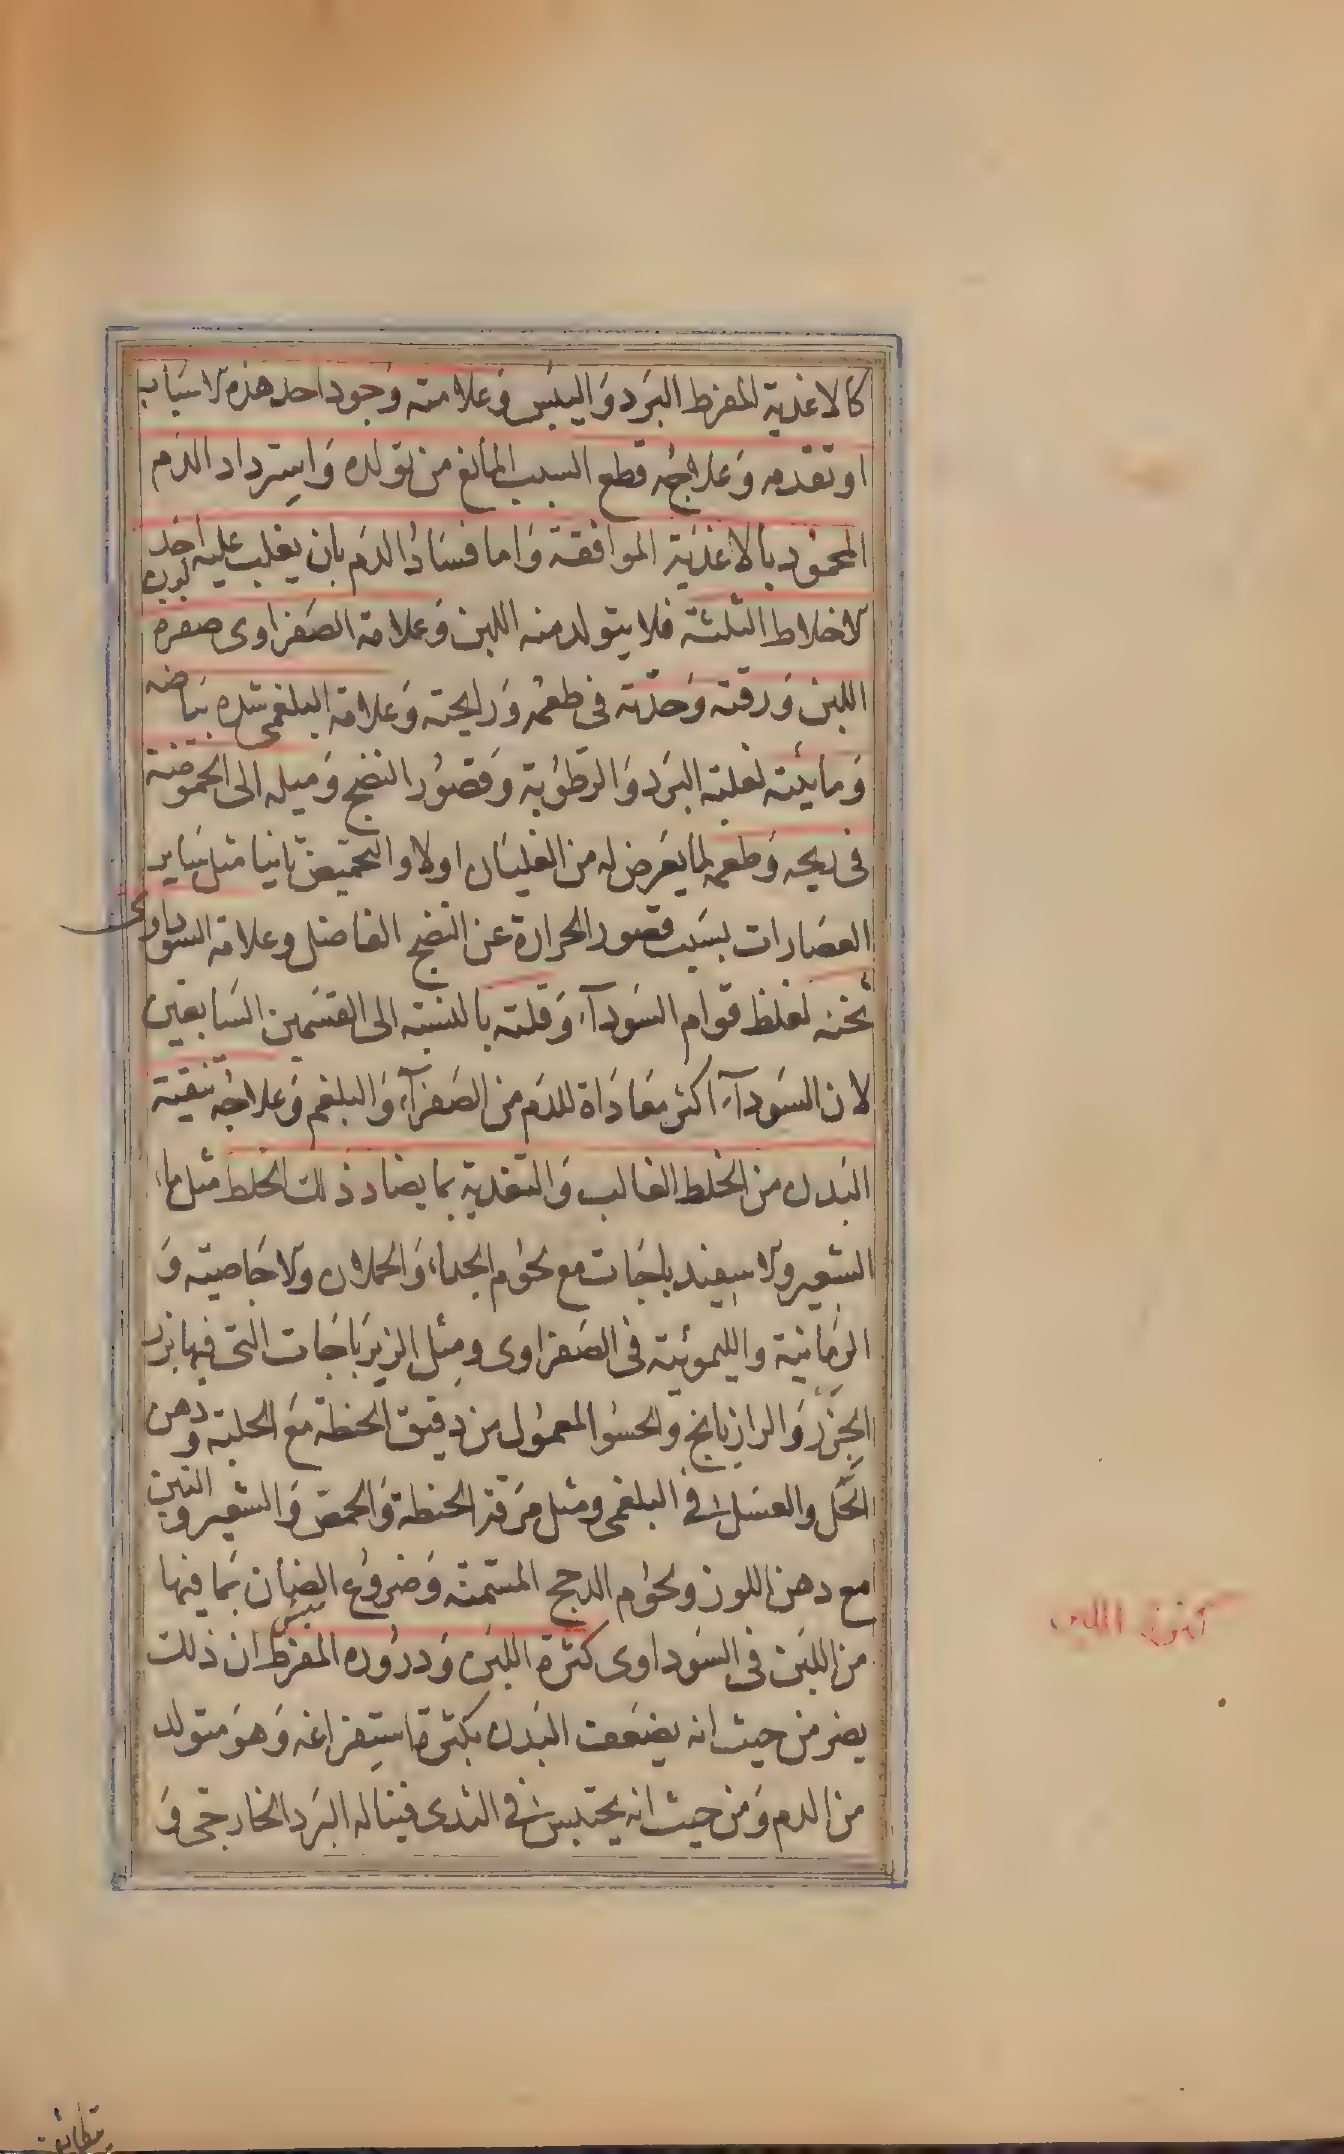 كالاغذية المفرط البرد واليبس وعلامته وجود احد هذه الاسباب
او تقدمه وعلاجه قطع السبب المانع من تولده واسترداد الدم
المحمود بالاغذية الموافقة واما فساد الدم بان يغلب عليه احد
الاخلاط الثلثة فلا يتولد منه اللبن وعلامة الصفراوى صفرة
اللبن ورقته وحدته فى طعمه ورايحته وعلامة البلغمى شدة بياضه
ومائيته لغلبة البرد والرطوبة وقصور النضج وميله الى الحموضة
فى ريحه وطعمه لما يعرض له من الغليان اولا والتحميض ثانيا مثل ساير
العصارات بسبب قصور الحرارة عن النضج الفاضل وعلامة السوداوى
ثخنه لغلظ قوام السودآء وقلته بالنسبة الى القسمين السابقين
لان السودآء اكثر معاداة للدم من الصفرآء والبلغم وعلاجه تنقية
البدن من الخلط الغالب والتغذية بما يضاد ذلك الخلط مثل ماء
الشعير والاسفيدباجات مع لحوم الجداء والحملان والاجاصية و
الرمانية والليموئية فى الصفراوى ومثل الزيرباجات التى فيها بزر
الجزر والرازيانج والحسو المعمول من دقيق الحنطة مع الحلبة ودهن
الحل والعسل فى البلغمى ومثل مرقة الحنطة والحمص والشعير والتين
مع دهن اللوز ولحوم الدجج المسمنة وضروع الضان بما فيها
من اللبن فى السوداوى كثرة اللبن ودروره المفرط ان ذلك
يضر من حيث انه يضعف البدن بكثرة استفراغه وهو متولد
من الدم ومن حيث انه يحتبس فى الثدى فيناله البرد الخارجى و
كثرة اللبن